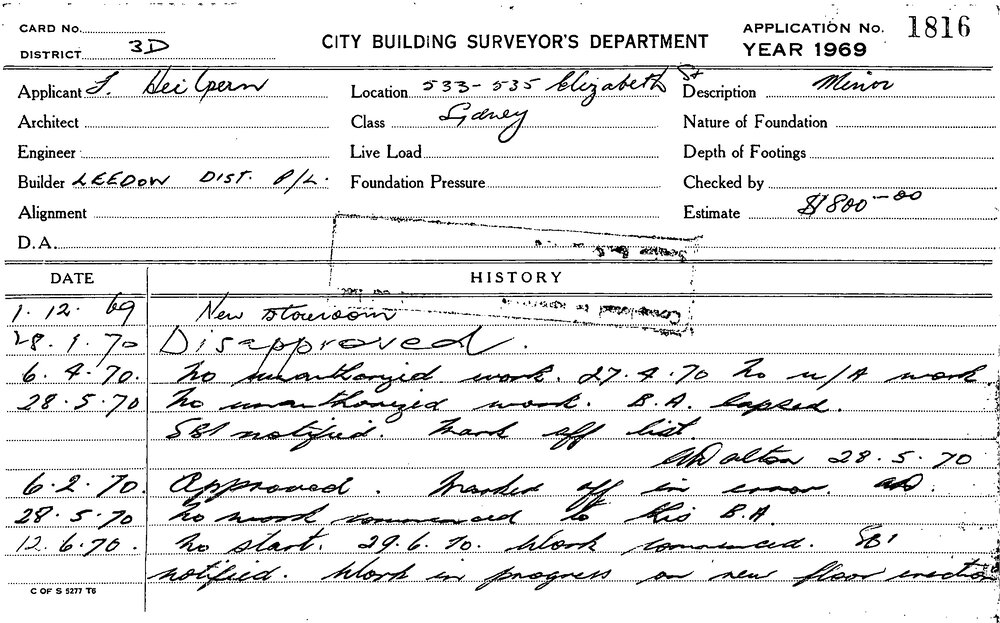 CARD No.
DISTRICT 3D
CITY BUILDING SURVEYOR'S DEPARTMENT
APPLICATION No. 1816
YEAR 1969
Applicant F. Heilpern
Location 533-535 Elizabeth St
Description Minor
Architect
Class Sydney
Nature of Foundation
Engineer
Live Load
Depth of Footings
Builder LEEDOW DIST. P/L.
Foundation Pressure
Checked by
Alignment
Estimate $1800-00
D.A.
DATE HISTORY
1. 12. 69 New storeroom
28. 1. 70 Disapproved.
6. 4. 70. No unauthorized work. 27. 4. 70 No u/A work
28. 5. 70 No unauthorized work. B.A. lapsed.
SBI notified. Mark off list.
ADalton 28. 5. 70
6. 2. 70. Approved. Marked off in error. AD.
28. 5. 70 No work commenced to this B.A.
12. 6. 70. No start. 29. 6. 70. Work commenced. SBI
notified. Work in progress on new floor erection
C OF S 5277 T6